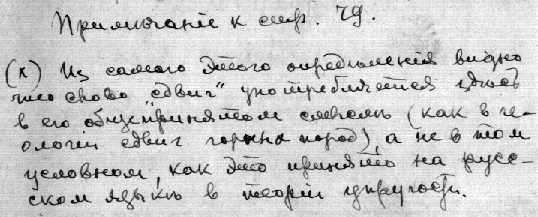 Примѣчанiе к стр. 79.
(x) Из самого этого опредѣленiя видно
что слово "сдвиг" употребляется здѣсь
в его общепринятом смыслѣ (как в ге-
ологiи сдвиг горных пород), а не в том
условном, как это принято на русс-
ском языкѣ в теорiи упругости.